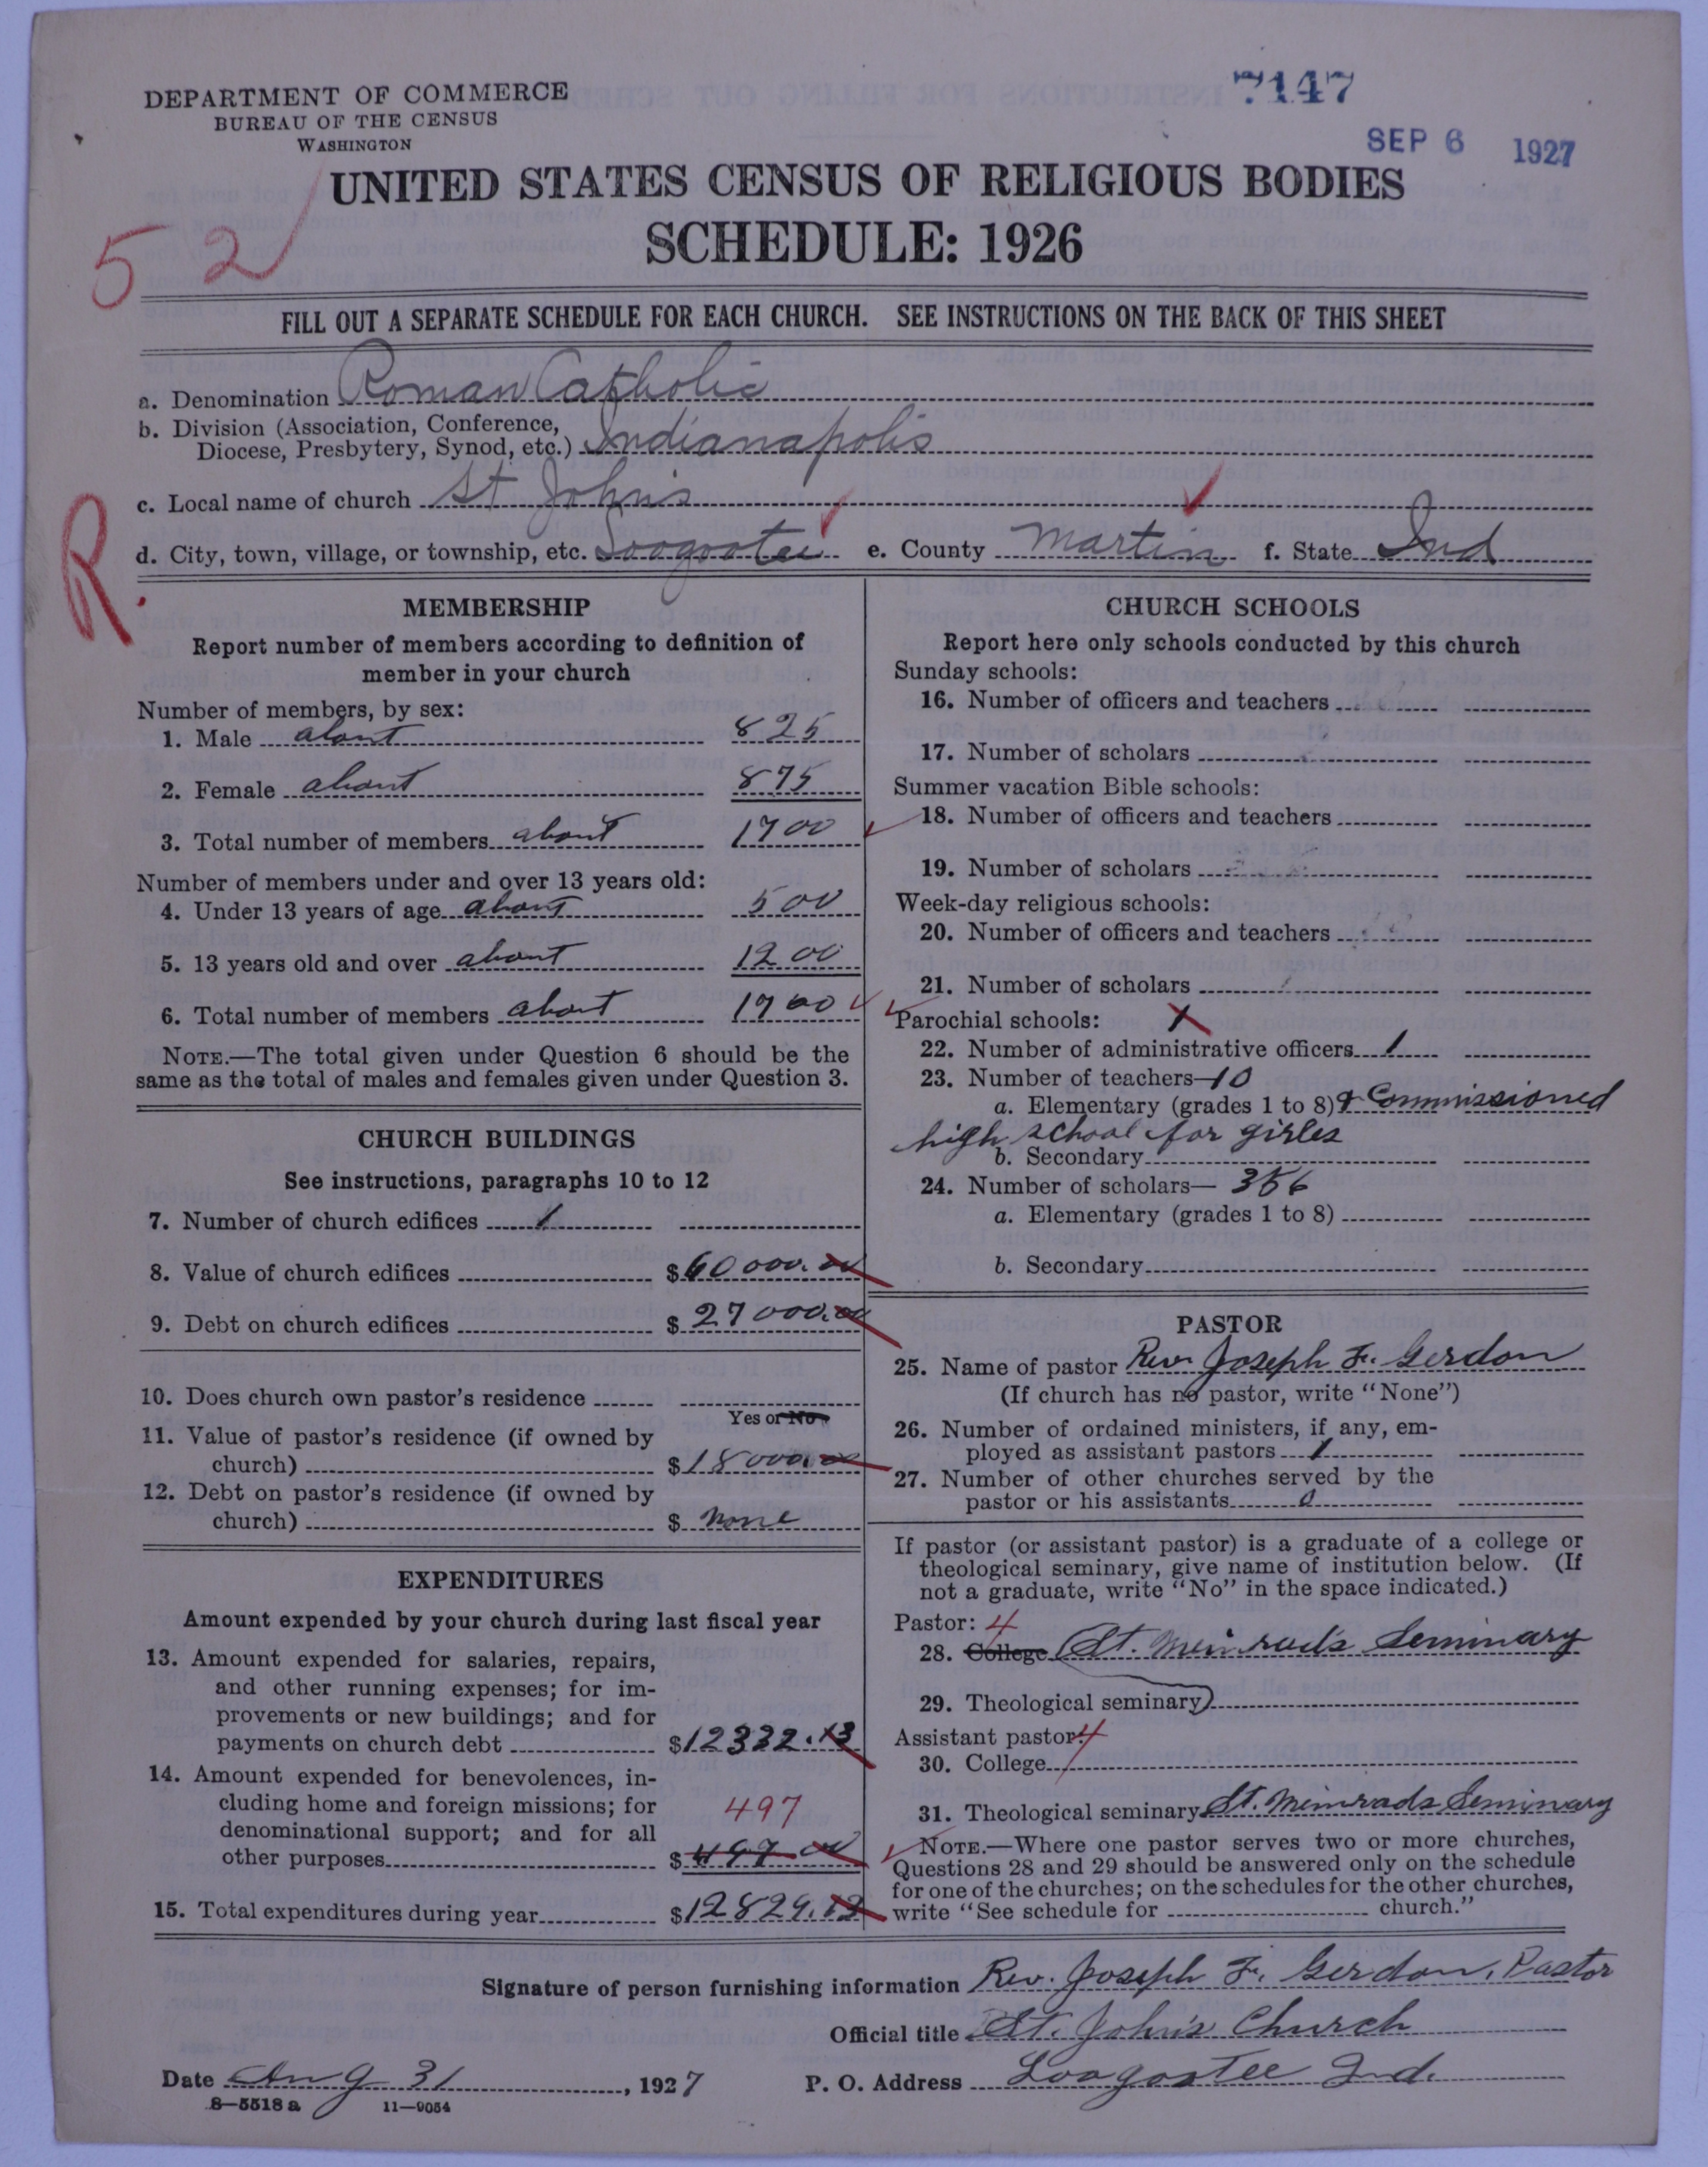 7147
DEPARTMENT OF COMMERCE
BUREAU OF THE CENSUS
WASHINGTON
SEP 6 1927
UNITED STATES CENSUS OF RELIGIOUS BODIES
SCHEDULE: 1926
52
FILL OUT A SEPARATE SCHEDULE FOR EACH CHURCH. SEE INSTRUCTIONS ON THE BACK OF THIS SHEET
a. Denomination Roman Catholic
b. Division (Association, Conference,
Diocese, Presbytery, Synod, etc.) Indianapolis
c. Local name of church St John's
d. City, town, village, or township, etc. Loogootee e. County Martin f. State Ind
R.
MEMBERSHIP
Report number of members according to definition of
member in your church
Number of members, by sex:
1. Male about 825
2. Female about 875
3. Total number of members about 1700
Number of members under and over 13 years old:
4. Under 13 years of age about 500
5. 13 years old and over about 1200
6. Total number of members about 1700
NOTE.—The total given under Question 6 should be the
same as the total of males and females given under Question 3.
CHURCH BUILDINGS
See instructions, paragraphs 10 to 12
7. Number of church edifices 1
8. Value of church edifices $60000.00
9. Debt on church edifices $27000.00
10. Does church own pastor's residence
Yes or No
11. Value of pastor's residence (if owned by
church) $18000.00
12. Debt on pastor's residence (if owned by
church) $ none
EXPENDITURES
Amount expended by your church during last fiscal year
13. Amount expended for salaries, repairs,
and other running expenses; for im-
provements or new buildings; and for
payments on church debt $12332.13
14. Amount expended for benevolences, in-
cluding home and foreign missions; for
denominational support; and for all
497
other purposes $497.00
15. Total expenditures during year $12829.13
CHURCH SCHOOLS
Report here only schools conducted by this church
Sunday schools:
16. Number of officers and teachers
17. Number of scholars
Summer vacation Bible schools:
18. Number of officers and teachers
19. Number of scholars
Week-day religious schools:
20. Number of officers and teachers
21. Number of scholars
Parochial schools: 1
22. Number of administrative officers 1
23. Number of teachers—10
a. Elementary (grades 1 to 8) & Commissioned
high school for girles
b. Secondary
24. Number of scholars— 356
a. Elementary (grades 1 to 8)
b. Secondary
PASTOR
25. Name of pastor Rev. Joseph F. Gerdon
(If church has no pastor, write "None")
26. Number of ordained ministers, if any, em-
ployed as assistant pastors 1
27. Number of other churches served by the
pastor or his assistants 0
If pastor (or assistant pastor) is a graduate of a college or
theological seminary, give name of institution below. (If
not a graduate, write "No" in the space indicated.)
Pastor: 4
28. College St. Meinrad's Seminary
29. Theological seminary
Assistant pastor: 4
30. College
31. Theological seminary St. Meinrads Seminary
NOTE.—Where one pastor serves two or more churches,
Questions 28 and 29 should be answered only on the schedule
for one of the churches; on the schedules for the other churches,
write "See schedule for church."
Signature of person furnishing information Rev. Joseph F. Gerdon, Pastor
Official title St. John's Church
Date Aug 31, 1927 P. O. Address Loogootee Ind.
8—5518 a 11—9054